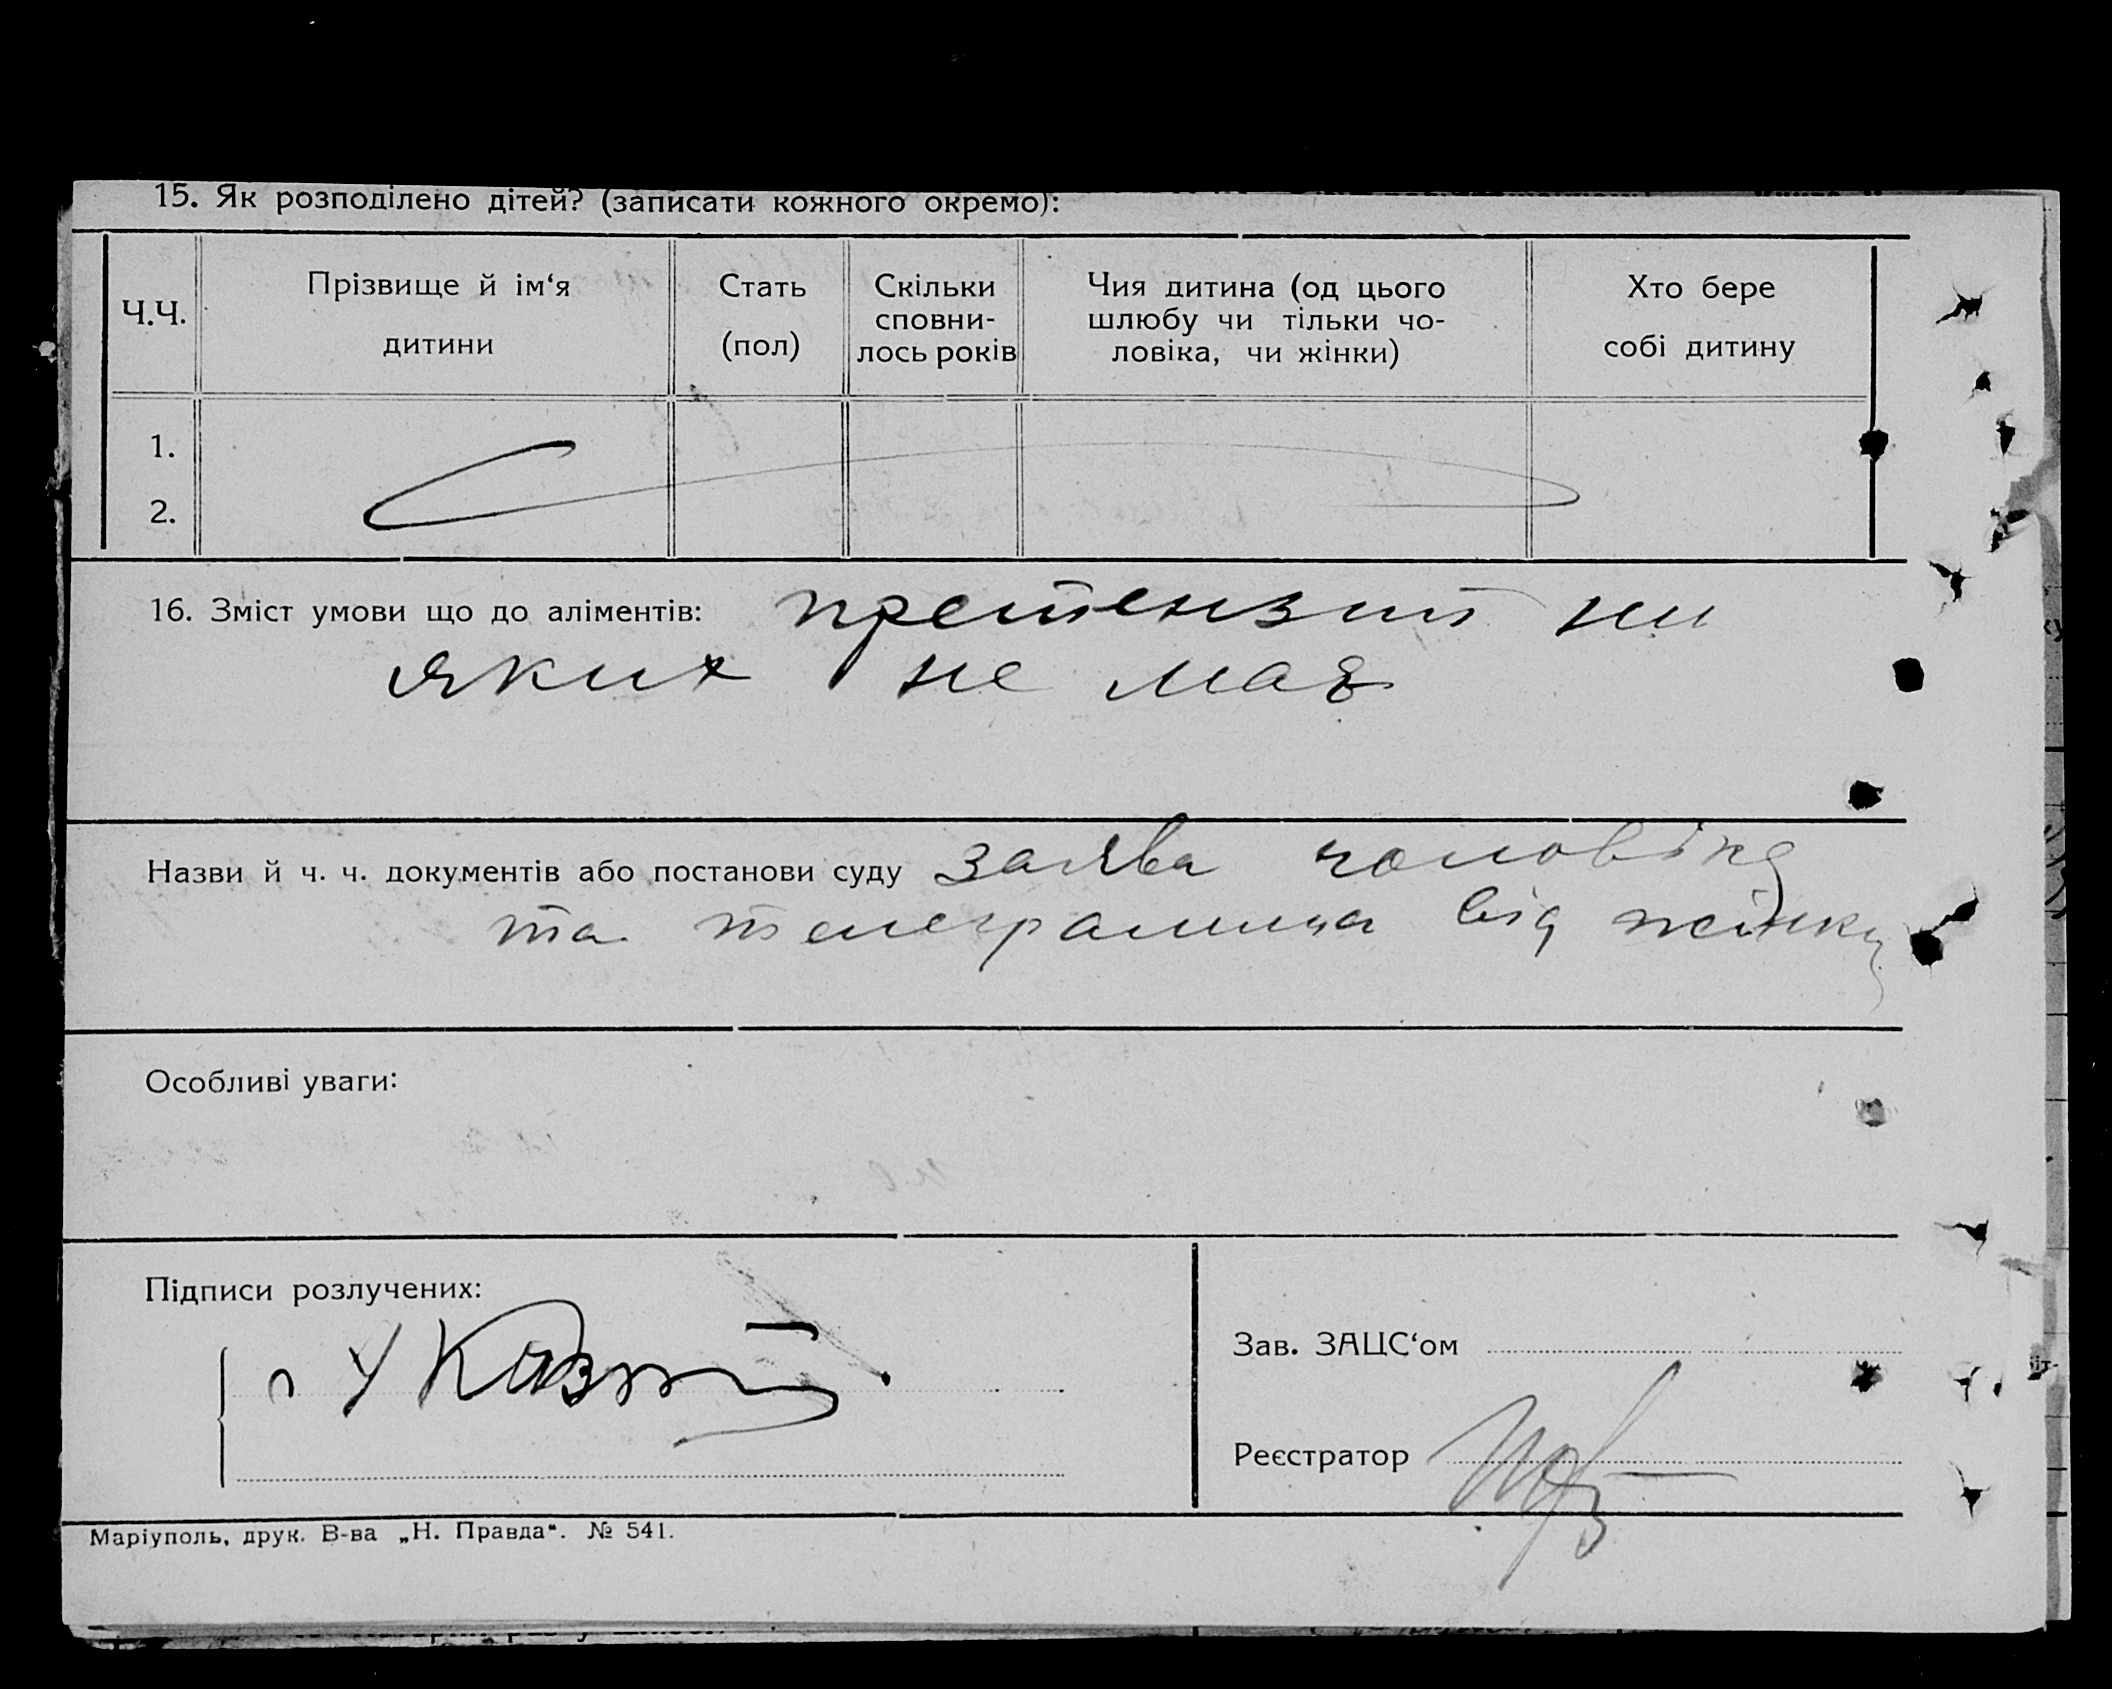 15. Як розподілено дітей? (записати кожного окремо):
Ч.Ч.
Прізвище й ім‘я
дитини
Стать
(пол)
Скільки
сповни-
лось років
Чия дитина (од цього
шлюбу чи тільки чо-
ловіка, чи жінки)
Хто бере
собі дитину
1.
2.
16. Зміст умови що до аліментів: претензит ни
яких не має
Назви й ч. ч. документів або постанови суду заява чоловіка
та телеграмма від жінки
Особливі уваги:
Підписи розлучених:
Зав. ЗАЦС‘ом
Реєстратор
Маріуполь, друк. В-ва „Н. Правда“. № 541.